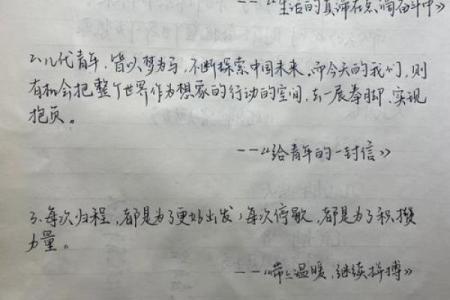 ——《生活的真谛在点滴奋斗中》
2.几代青年,皆以梦为马,不断探索中国未来。而今天的我们,则
有机会把整个世界作为想象的行动的空间,去一展拳脚、实现
抱负。
——《给青年的一封信》
3.每次归程,都是为了更好出发;每次停歇,都是为了积攒
力量。
——《带上温暖,继续拼搏》